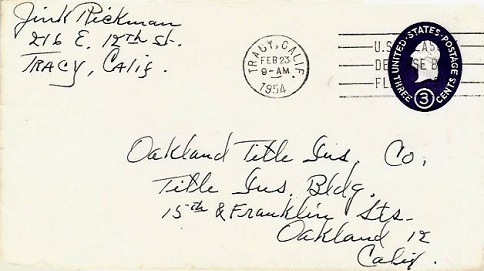 Jink Rickman
216 E. 12th St.
Tracy, Calif.
TRACY, CALIF.
FEB 23
9-AM
1954
UNITED·STATES·POSTAGE
THREE 3 CENTS
Oakland Title Ins. Co.
Title Ins. Bldg.
15th & Franklin Sts.
Oakland 12
Calif.